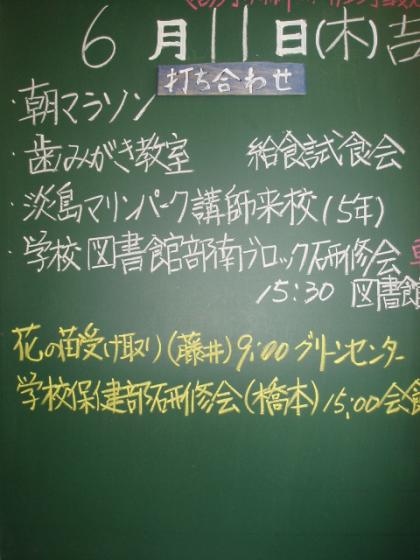 6月11日(木)
打ち合わせ
・朝マラソン
・歯みがき教室 給食試食会
・淡島マリンパーク講師来校(5年)
・学校図書館部南ブロック研修会
15:30 図書館
花の苗受け取り(藤井)9:00 グリーンセンター
学校保健部研修会(橋本)15:00会館